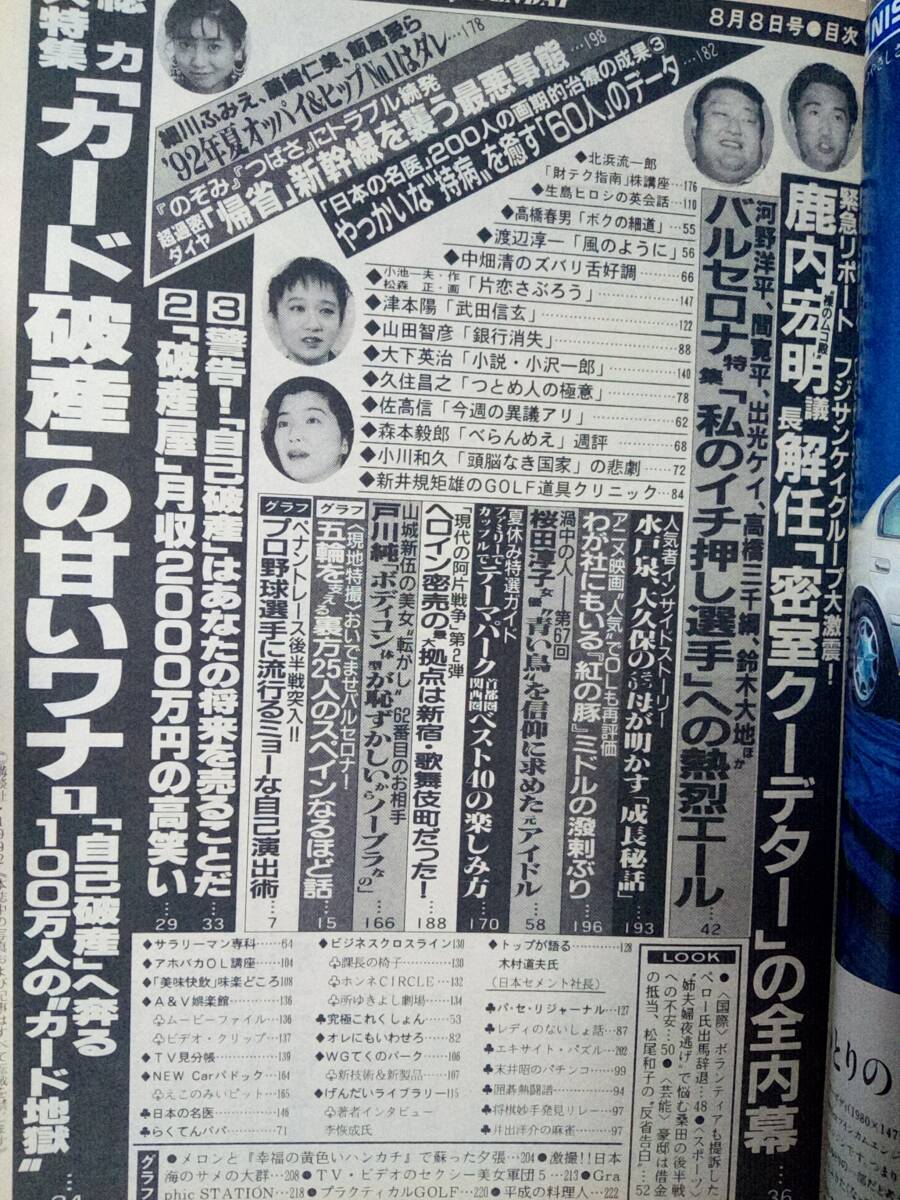 8月8日号●目次
緊急リポート フジサンケイグループ大激震!
鹿内宏明議長解任「密室クーデター」の全内幕
…36
河野洋平、間寛平、出光ケイ、高橋三千綱、鈴木大地ほか
バルセロナ特集「私のイチ押し選手」への熱烈エール
…42
細川ふみえ、飯島愛ら
'92年夏オッパイ&ヒップNo.1はダレ…178
『のぞみ』『つばさ』にトラブル続発
超過密ダイヤ「帰省」新幹線を襲う最悪事態…198
「日本の名医」200人の画期的治療の成果③
やっかいな"持病"を癒す「60人」のデータ…182
◆北浜流一郎
「財テク指南」株講座…176
◆生島ヒロシの英会話…110
◆高橋春男「ボクの細道」…55
◆渡辺淳一「風のように」56
◆中畑清のズバリ舌好調…66
◆小池一夫・作
松森正・画「片恋さぶろう」…147
◆津本陽「武田信玄」…122
◆山田智彦「銀行消失」…88
◆大下英治「小説・小沢一郎」…140
◆久住昌之「つとめ人の極意」…78
◆佐高信「今週の異議アリ」…62
◆森本毅郎「べらんめえ」週評…68
◆小川和久「頭脳なき国家」の悲劇…72
◆新井規矩雄のGOLF道具クリニック…84
人気者インサイドストーリー
水戸泉、大久保の母が明かす「成長秘話」
…193
アニメ映画"人気"でOLも再評価
わが社にもいる『紅の豚』ミドルの溌剌ぶり
…196
渦中の人――第67回
桜田淳子女優"青い鳥"を信仰に求めた元アイドル
…58
夏休み特選ガイド
ファミリーでカップルでテーマパーク首都圏関西圏ベスト40の楽しみ方
…170
「現代の阿片戦争」第2弾
ヘロイン密売の最大拠点は新宿・歌舞伎町だった!
…188
山城新伍の美女"転がし"62番目のお相手
戸川純「ボディコン体型が恥ずかしいからノーブラなの」
…166
グラフ
〈現地特撮〉おいでませバルセロナ!
五輪を支える裏方25人のスペインなるほど話
…15
グラフ
ペナントレース後半戦突入!!
プロ野球選手に流行るミョーな自己演出術
…7
大特集
「カード破産」の甘いワナ
1「自己破産」へ奔る100万人の"カード地獄"
…24
2「破産屋」月収2000万円の高笑い
…29
3警告!「自己破産」はあなたの将来を売ることだ
…33
◆サラリーマン専科…64
◆アホバカOL講座…104
◆「美味快飲」味楽どころ108
◆A&V娯楽館…136
♧ムービーファイル…136
♧ビデオ・クリップ…137
◆TV見分帳…139
◆NEW Carパドック…164
♧えこのみいピット…165
♣日本の名医…146
♣らくてんパパ…71
◆ビジネスクロスライン130
♧課長の椅子…130
♧ホンネCIRCLE…132
♧所ゆきよし劇場…134
♣究極これくしょん…53
◆オレにもいわせろ…82
◆WGてくのパーク…106
♧新技術&新製品…107
◆げんだいライブラリー115
♧著者インタビュー
李恢成氏
◆トップが語る…128
木村道夫氏
(日本セメント社長)
♣パ・セ・リジャーナル…127
♣レディのないしょ話…87
♣エキサイト・パズル…202
♣末井昭のパチンコ…99
♣囲碁熱闘譜…94
♣将棋妙手発見リレー…97
♣井出洋介の麻雀…97
LOOK
●〈国際〉ボランティアも提訴した
ペロー氏出馬辞退…48●〈スポーツ〉
"姉夫婦夜逃げ"で悩む桑田の後半戦
への不安…50●〈芸能〉豪邸は借金
の抵当、松尾和子の"反省告白"…52
グラフ
●メロンと『幸福の黄色いハンカチ』で蘇った夕張…204●激撮!!日本
海のサメの大群…208●TV・ビデオのセクシー美女軍団5…213●Gra
phic STATION…218●プラクティカルGOLF…220●平成の料理人…222